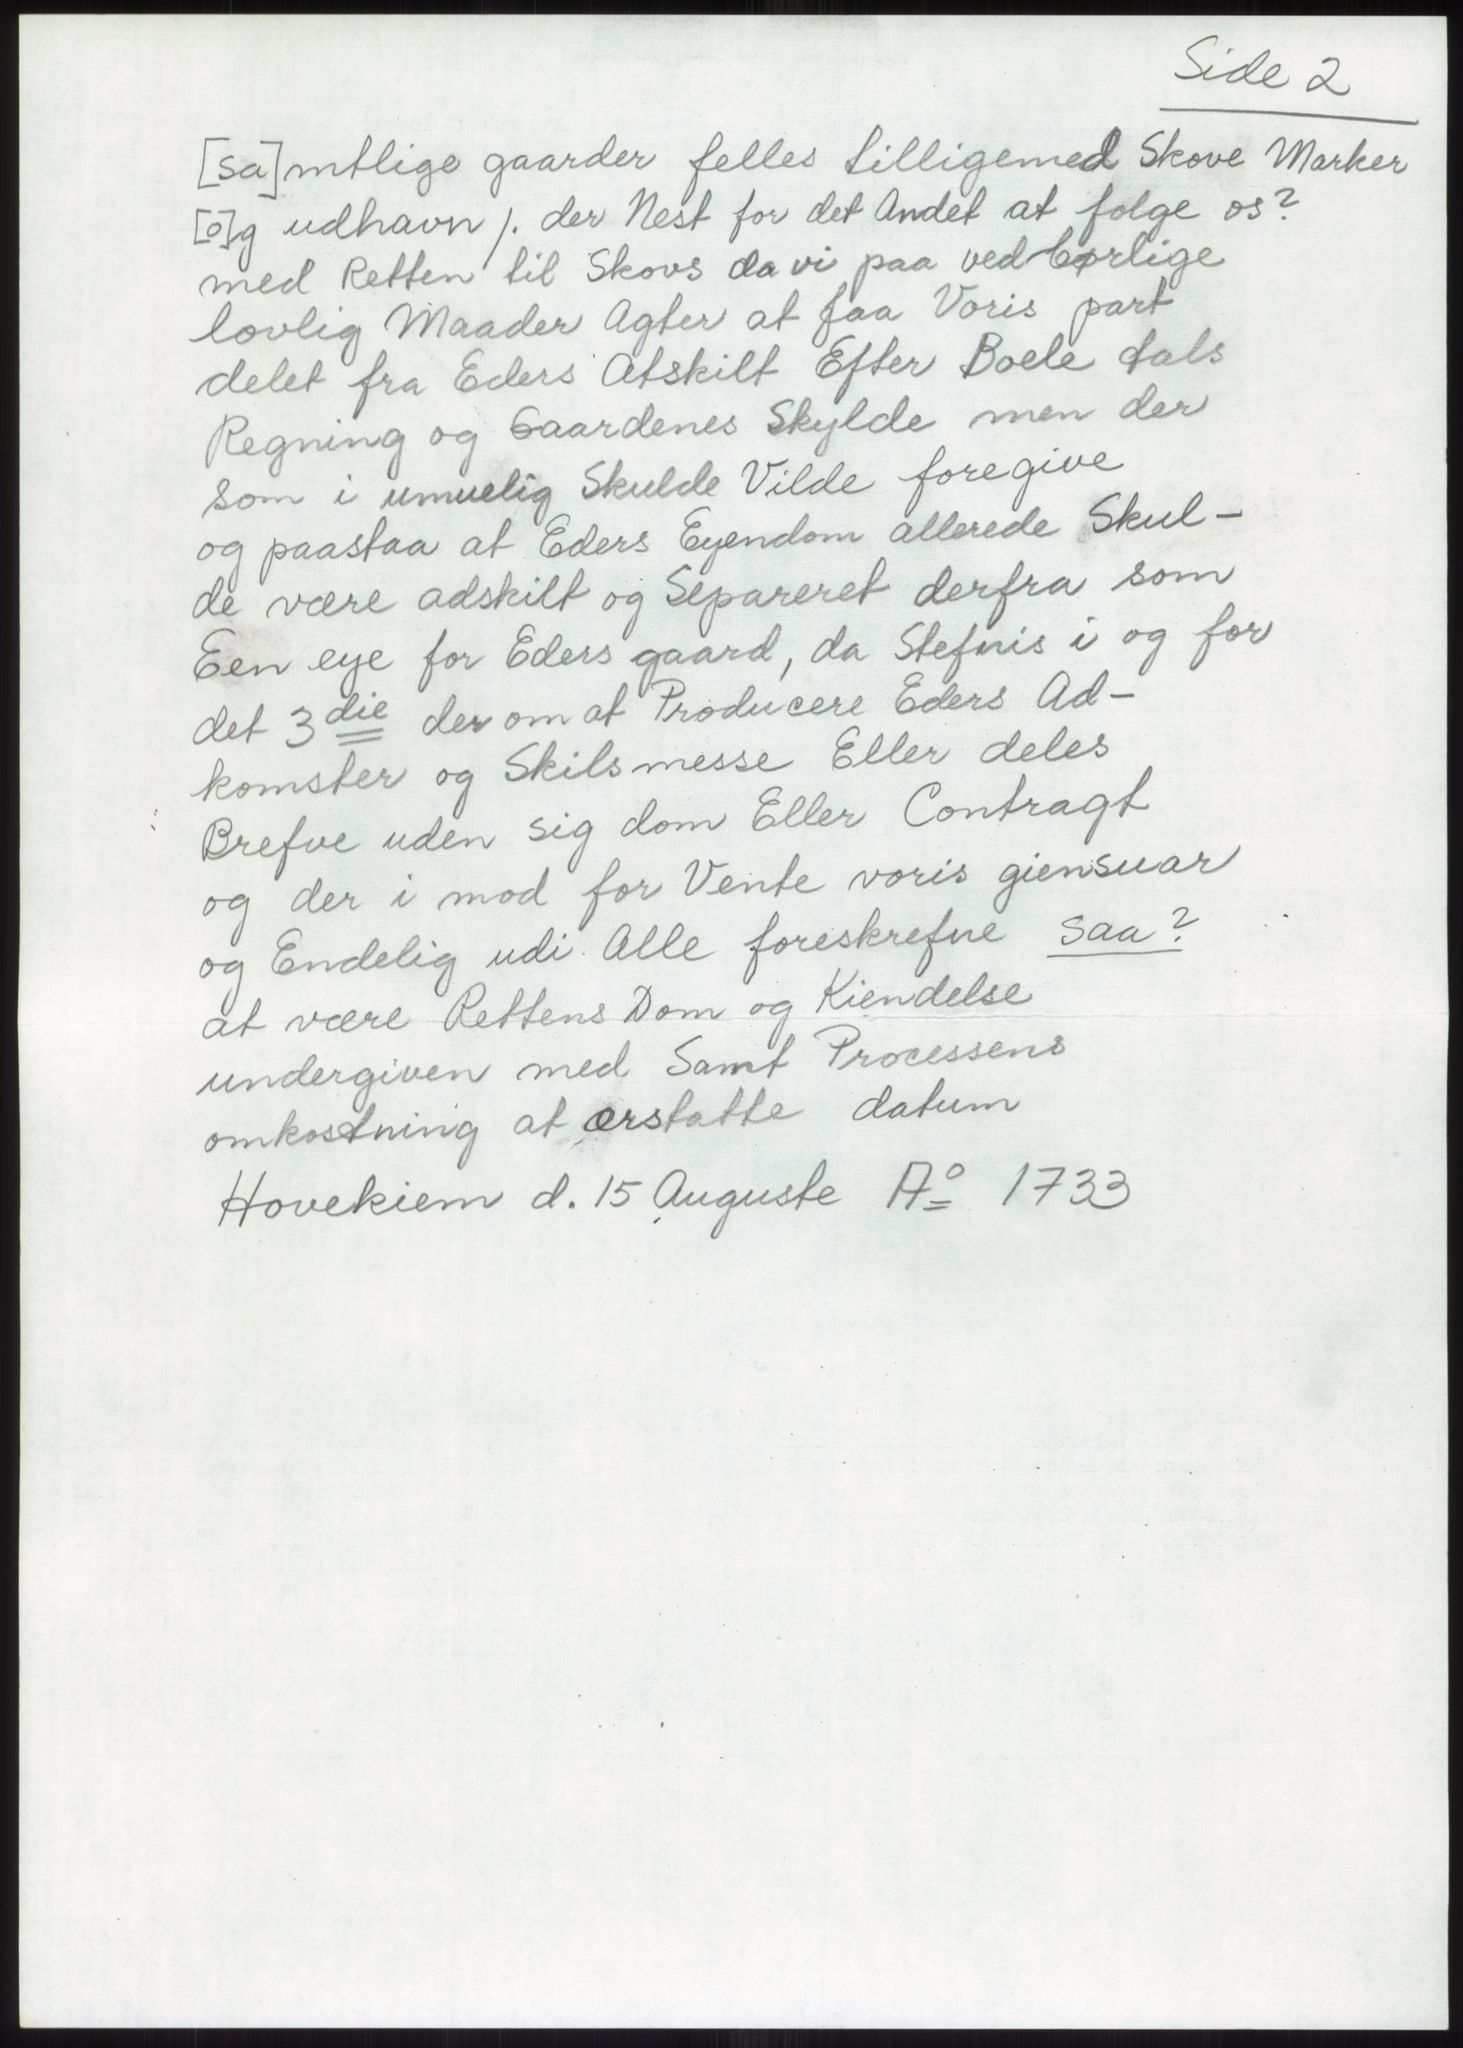 Side 2
[sa]mtlige gaarder felles tilligemed Skove Marker
[o]g udhavn /. der Nest for det Andet at følge os?
med Retten til Skovs da vi paa vedbørlige
lovlig Maader Agter at faa Voris part
delet fra Eders Atskilt Efter Boele tals
Regning og Gaardenes Skylde men der
som i umuelig Skulde Vilde foregive
og paastaa at Eders Eyendom allerede Skul-
de være adskilt og Separeret derfra som
Een eye for Eders gaard, da Stefnis i og for
det 3die der om at Producere Eders Ad-
komster og Skilsmesse Eller deles
Brefve uden sig dom Eller Contragt
og der i mod for Vente voris giensuar
og Endelig udi Alle foreskrefne saa?
at være Rettens Dom og Kiendelse
undergiven med Samt Processens
omkostning at erstatte datum
Hovekiem d. 15 Auguste Aº 1733